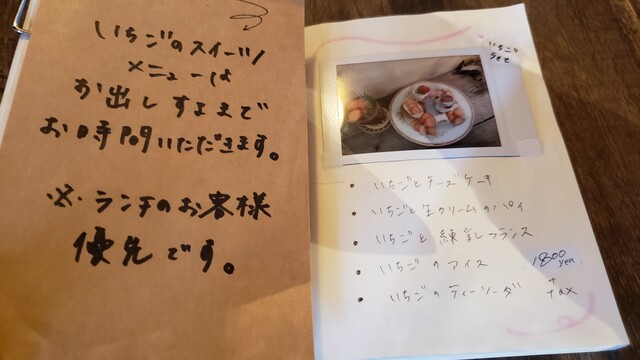 いちごのスイーツ
メニューは
お出しするまで
お時間いただきます。
※ランチのお客様
優先です。
いちご
Set
• いちごとチーズケーキ
• いちごと生クリームのパイ
• いちごと練乳フランス
• いちごのアイス
1800
yen
• いちごのティーソーダ
+
tax